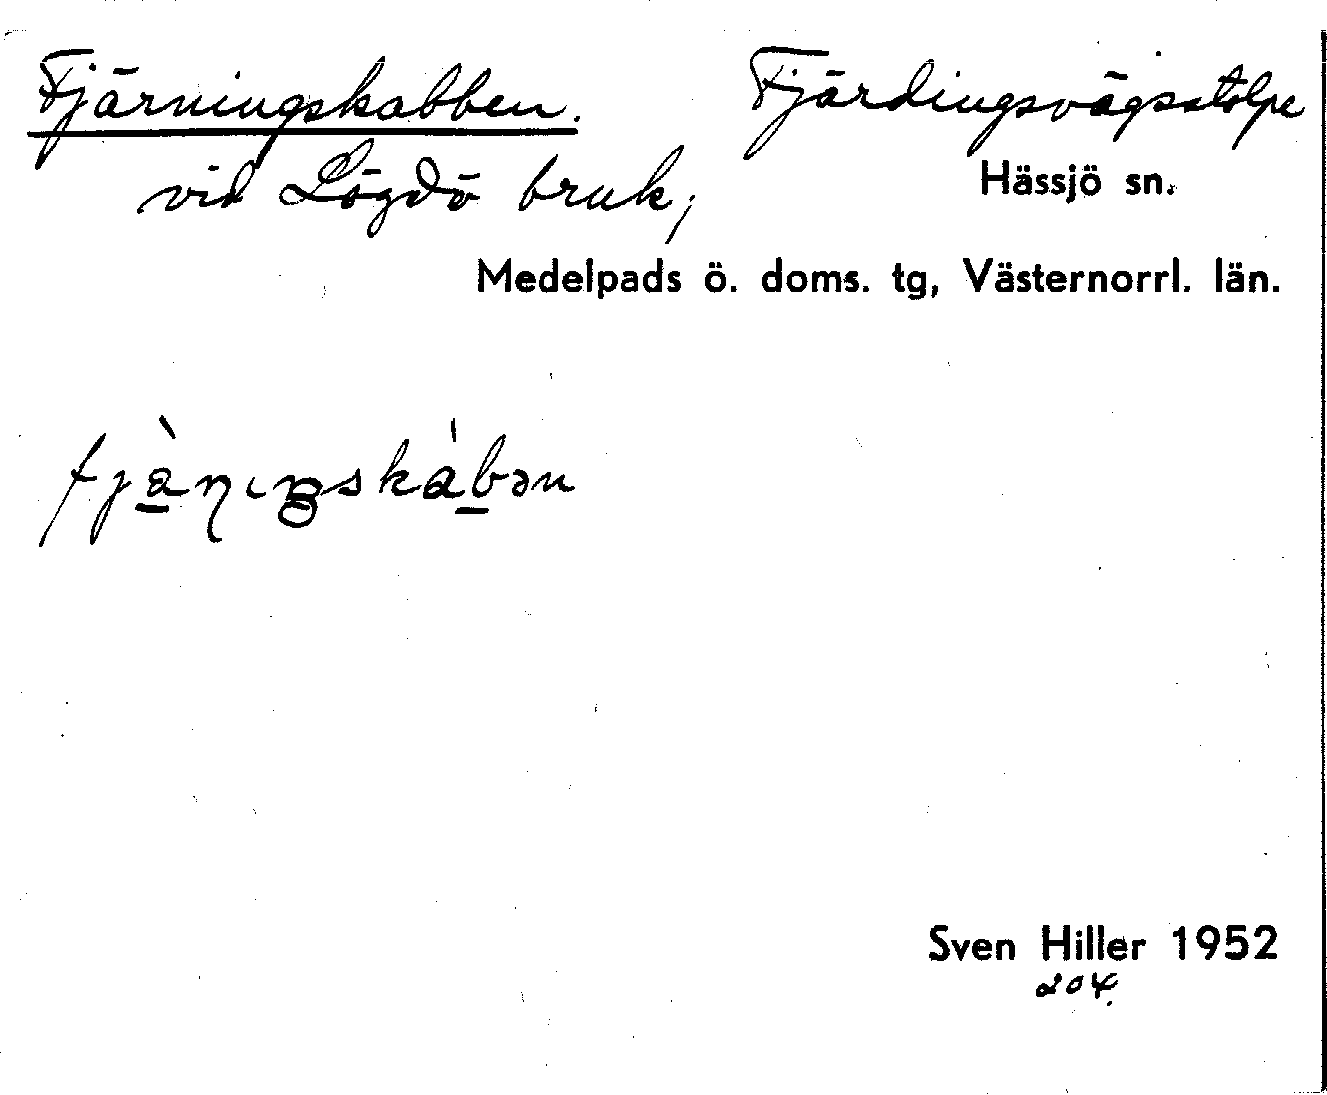 Fjärningskabben. Fjärdingsvägsstolpe
vid Lögdö bruk, Hässjö sn.
Medelpads ö. doms. tg, Västernorrl. län.
Sven Hiller 1952
204.